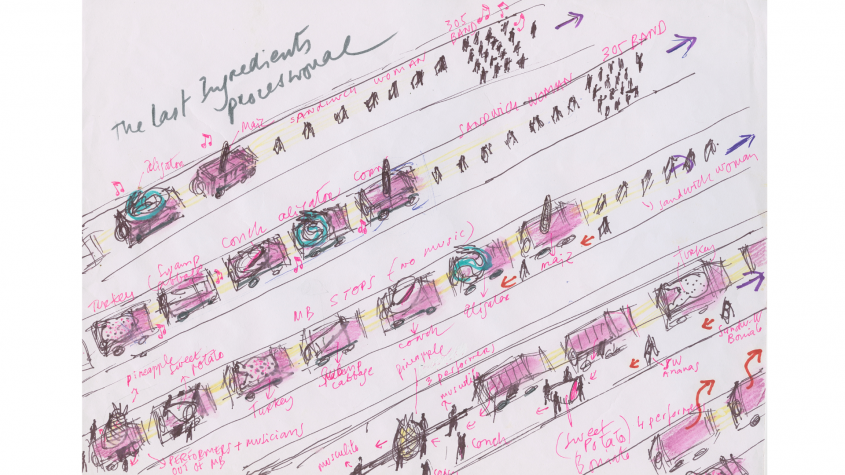 The last Ingredients
processional
305
BAND
305 BAND
Maiz
SANDWICH WOMAN
SANDWICH WOMAN
aligator
conch
aligator
corn
sandwich woman
Turkey
Swamp
cabbage
MB STOPS (no music)
maiz
aligator
Turkey
conch
pineapple
sweet
potato
swamp
cabbage
Turkey
pineapple
3 performers
musulito
SW
Ananas
Sandwich
Boniato
3 PERFORMERS + musicians
OUT OF MB
musulito
conch
(Sweet
Potato)
Boniato
4 performers